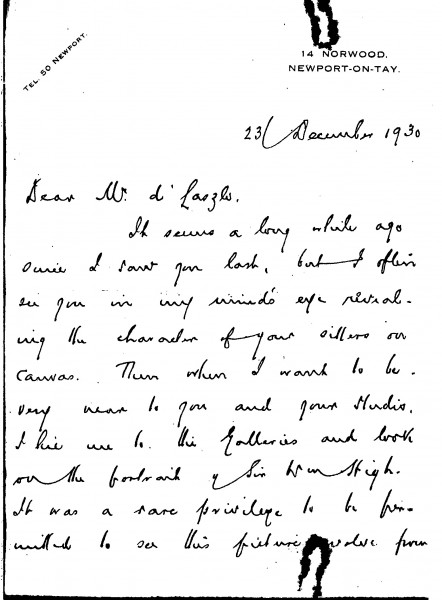 TEL. 50 NEWPORT.
14 NORWOOD.
NEWPORT-ON-TAY.
23/ December 1930
Dear Mr. d' Laszlo,
It seems a long while ago
since I saw you last, but I often
see you in my mind's eye reveal-
ing the character of your sitters on
canvas. Then when I want to be
very near to you and your studio,
I hie me to the Galleries and look
on the portrait of Sir Wm High.
It was a rare privilege to be per-
mitted to see this picture evolve from